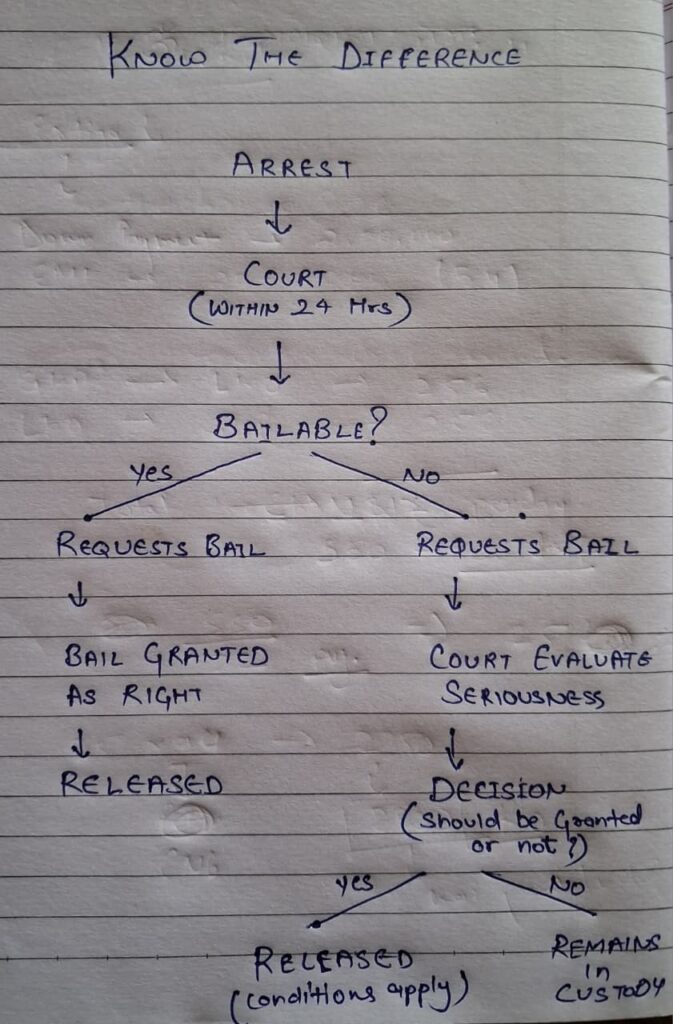 KNOW THE DIFFERENCE
ARREST
COURT
(WITHIN 24 Hrs)
BAILABLE?
Yes
NO
REQUESTS BAIL
REQUESTS BAIL
BAIL GRANTED
AS RIGHT
COURT EVALUATE
SERIOUSNESS
RELEASED
DECISION
(should be Granted
or not?)
Yes
NO
RELEASED
(conditions apply)
REMAINS
in
CUSTODY